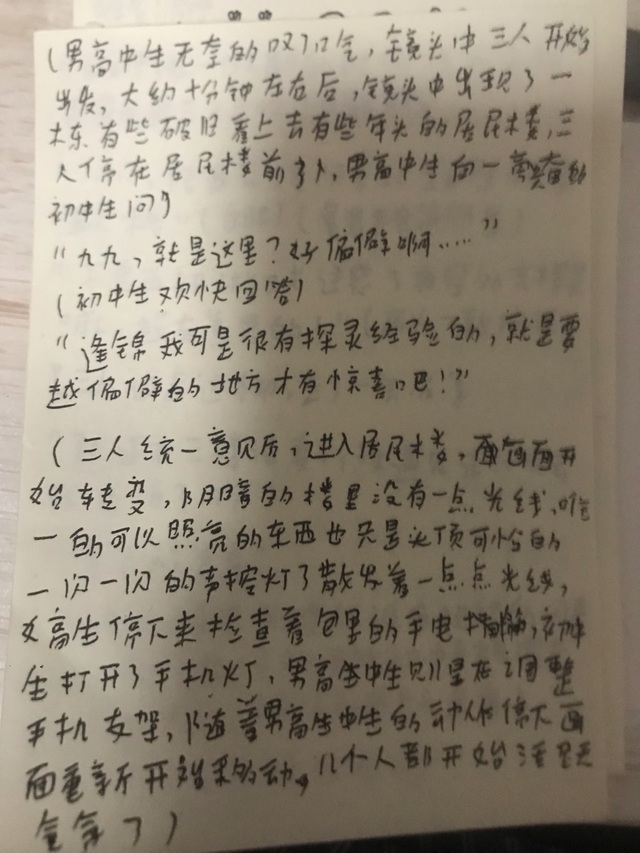 (男高中生无奈的叹了口气，镜头中三人开始
出发，大约十分钟左右后，镜头中出现了一
栋有些破旧看上去有些年头的居民楼，三
人停在居民楼前，男高中生向一旁兴奋的
初中生问)
“九九，就是这里？好偏僻啊……”
(初中生欢快回答)
“逢锦我可是很有探灵经验的，就是要
越偏僻的地方才有惊喜吧！”
(三人统一意见后，进入居民楼，画面开
始转变，阴暗的楼里没有一点光线，唯
一的可以照亮的东西也只是头顶可怜的
一闪一闪的声控灯了散发着一点点光线，
女高生停下来检查着包里的手电，初中
生打开了手机灯，男高中生则是在调整
手机支架，随着男高中生的动作停下画
面重新开始移动，几个人都开始
)